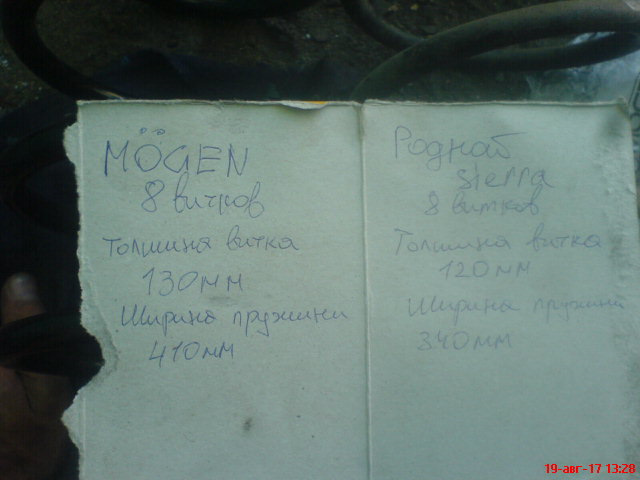 MÖGEN
8 витков
Толшина витка
130мм
Ширина пружини
410мм
Родная
sierra
8 витков
Толшина витка
120мм
Ширина пружини
340мм
19-авг-17 13:28